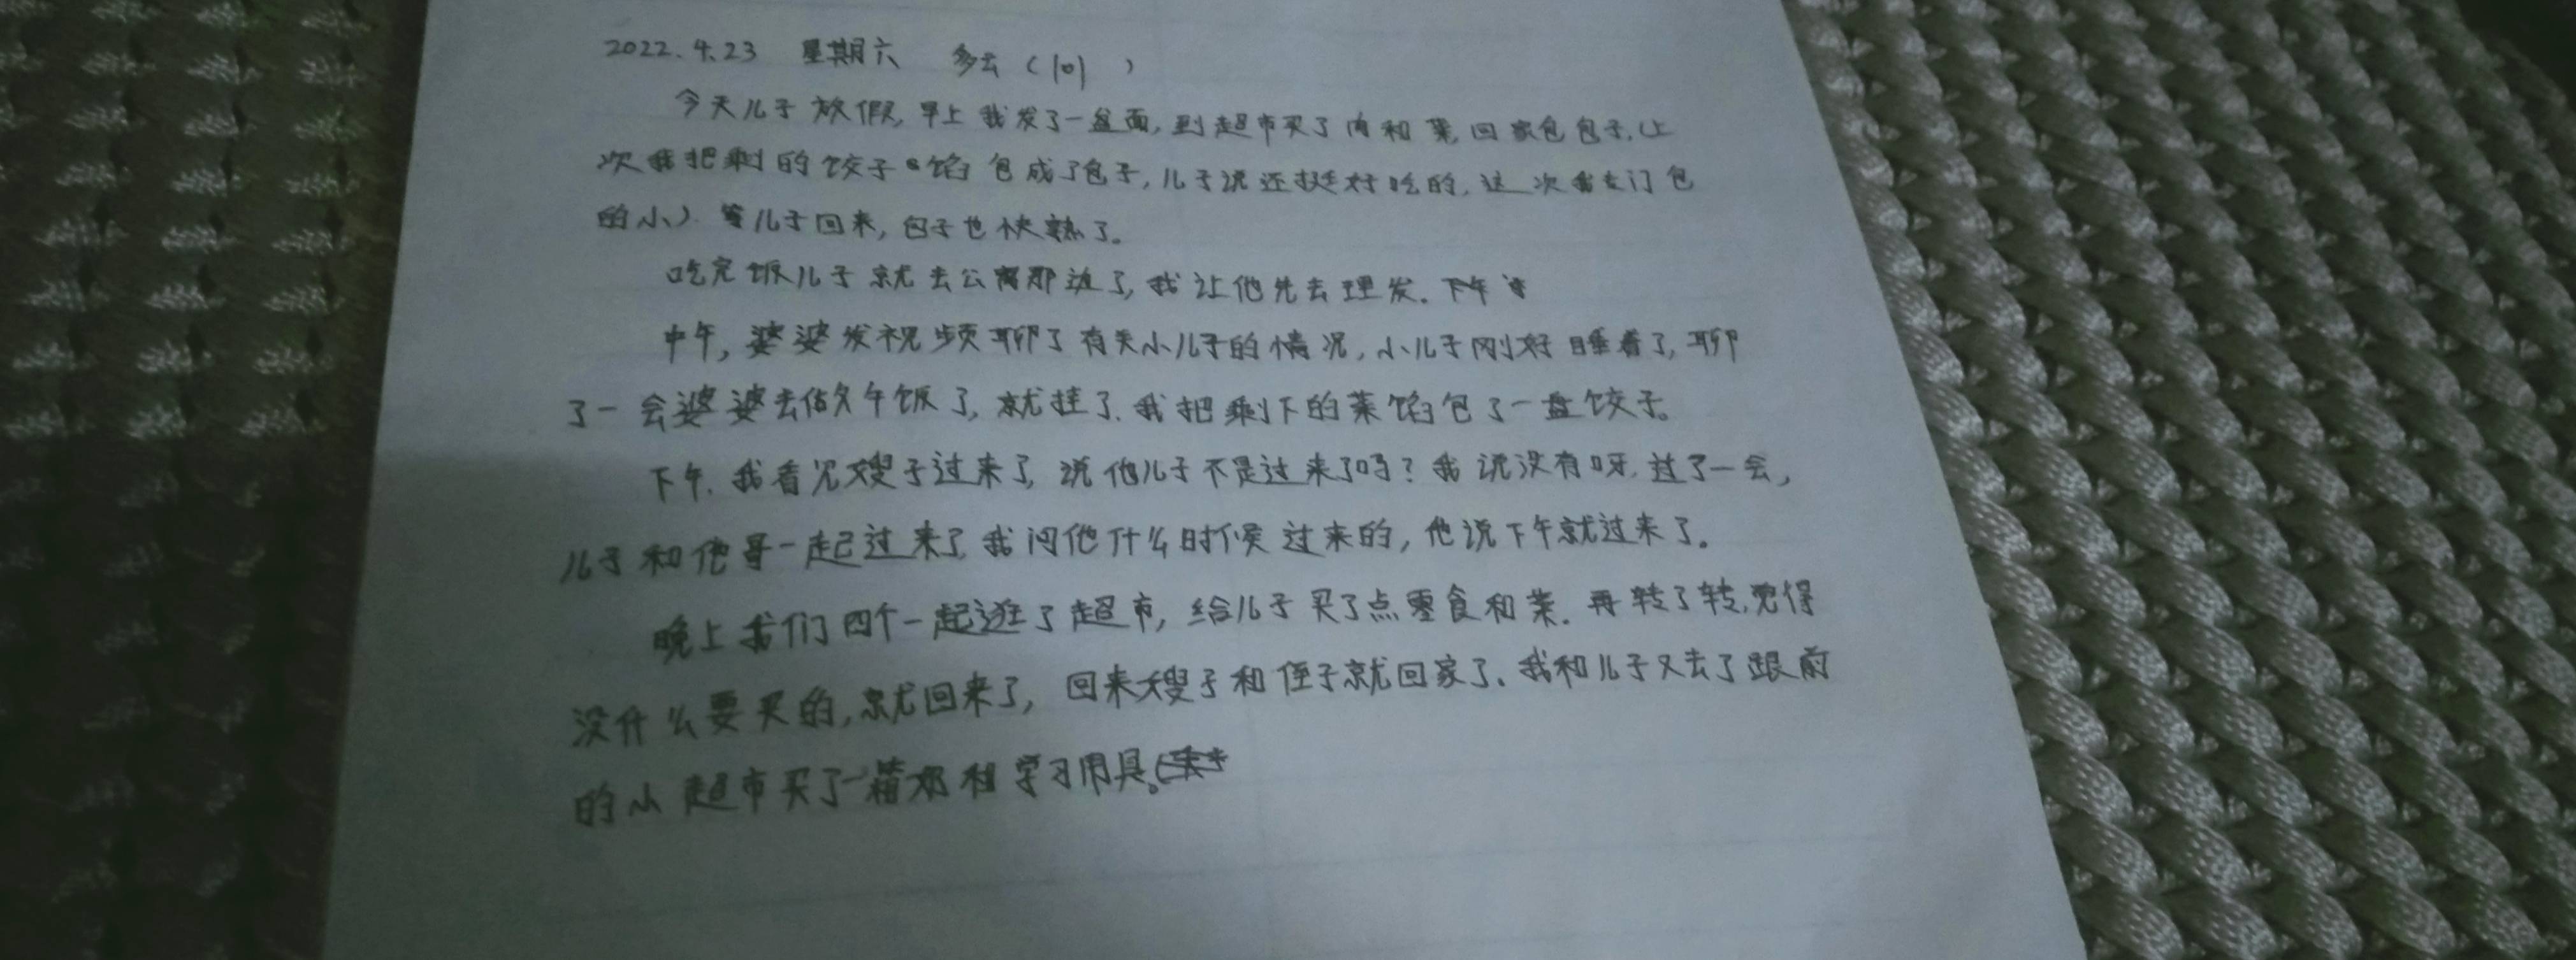 2022.4.23 星期六 多云 (101 )
今天儿子放假,早上我发了一盆面,到超市买了肉和菜,回家包包子.(上
次我把剩的饺子馅包成了包子,儿子说还挺好吃的,这次我专门包
的小). 等儿子回来,包子也快熟了。
吃完饭儿子就去公寓那边了,我让他先去理发.下午
中午,婆婆发视频聊了有关小儿子的情况,小儿子刚好睡着了,聊
了一会婆婆去做午饭了,就挂了.我把剩下的菜馅包了一盘饺子。
下午.我看见嫂子过来了,说他儿子不是过来了吗?我说没有呀.过了一会,
儿子和他哥一起过来了,我问他什么时候过来的,他说下午就过来了。
晚上我们四个一起逛了超市,给儿子买了点零食和菜.再转了转,觉得
没什么要买的,就回来了,回来嫂子和侄子就回家了.我和儿子又去了跟前
的小超市买了一箱奶和学习用具。